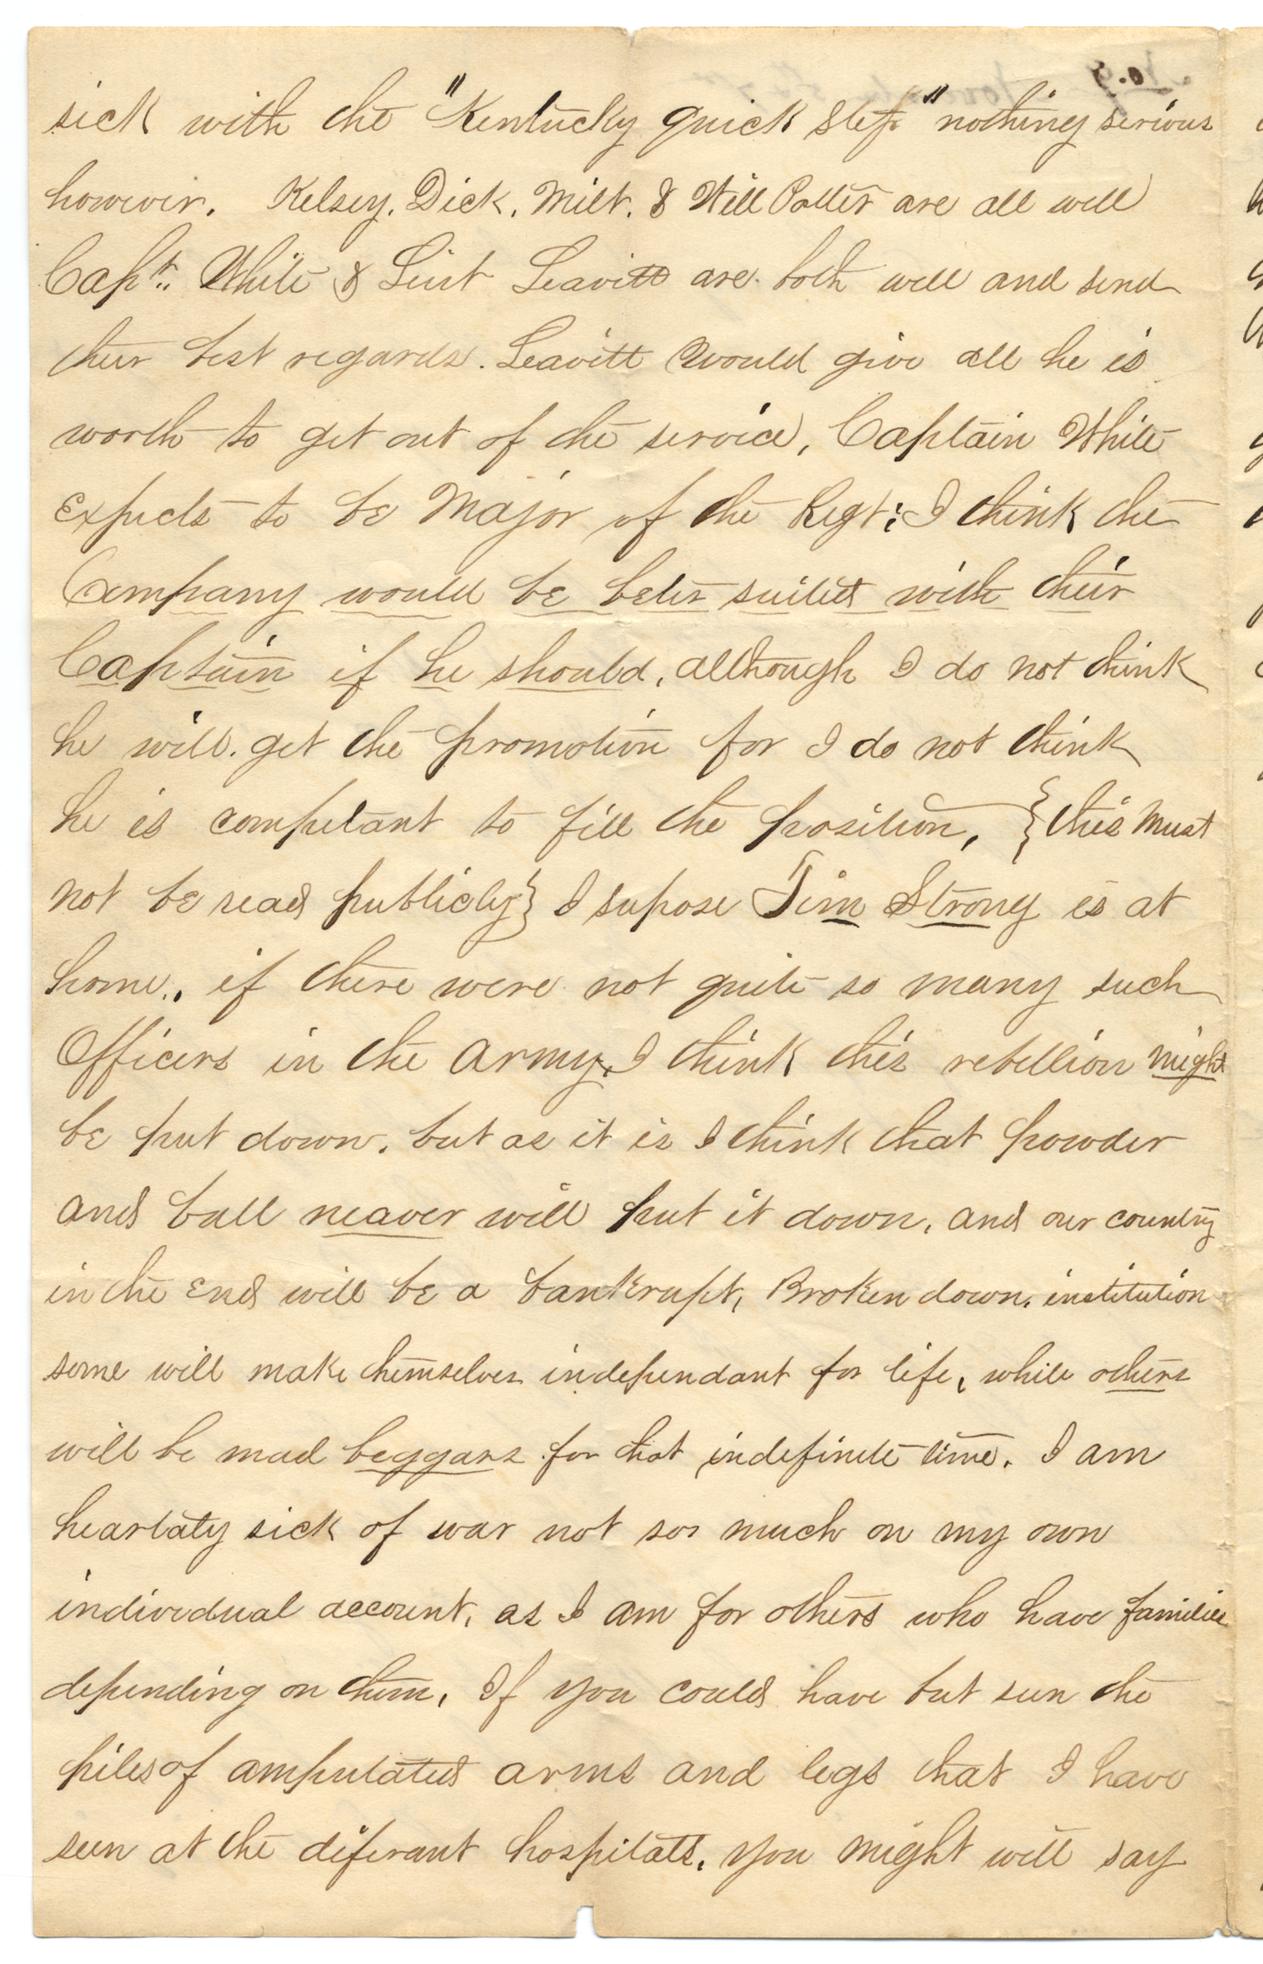 sick with the "Kentucky quick step" nothing serious
however. Kelsey, Dick, Milt, & Will Potter are all well
Capt. White & Leut Leavitt are both well and send
their best regards. Leavitt would give all he is
worth to get out of the service, Captain White
expects to be Major of the Regt; I think the
Company would be beter suited with their
Captain if he should, although I do not think
he will get the promotion for I do not think
he is compelant to fill the position, {this must
not be read publicly} I supose Jim Strong is at
home., if there were not quite so many such
Officers in the army, I think this rebellion might
be put down. but as it is I think that powder
and ball neaver will put it down, and our country
in the end will be a bankrupt, Broken down, institution
some will make themselves independant for life, while others
will be mad beggars for that indefinite time. I am
heartaty sick of war not so much on my own
individual account, as I am for others who have families
depending on them, If you could have but seen the
piles of amputated arms and legs that I have
seen at the diferant hospitals, you might well say